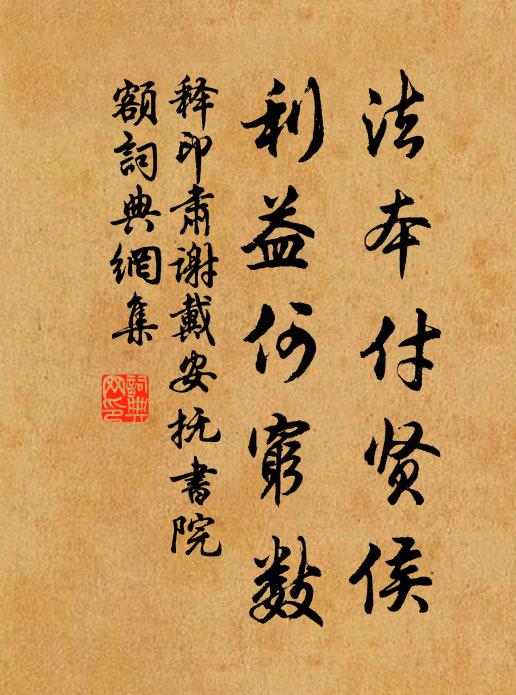 法本付贤侯
利益何穷数
释印肃谢戴安抚书院
额词典网集
词典网印